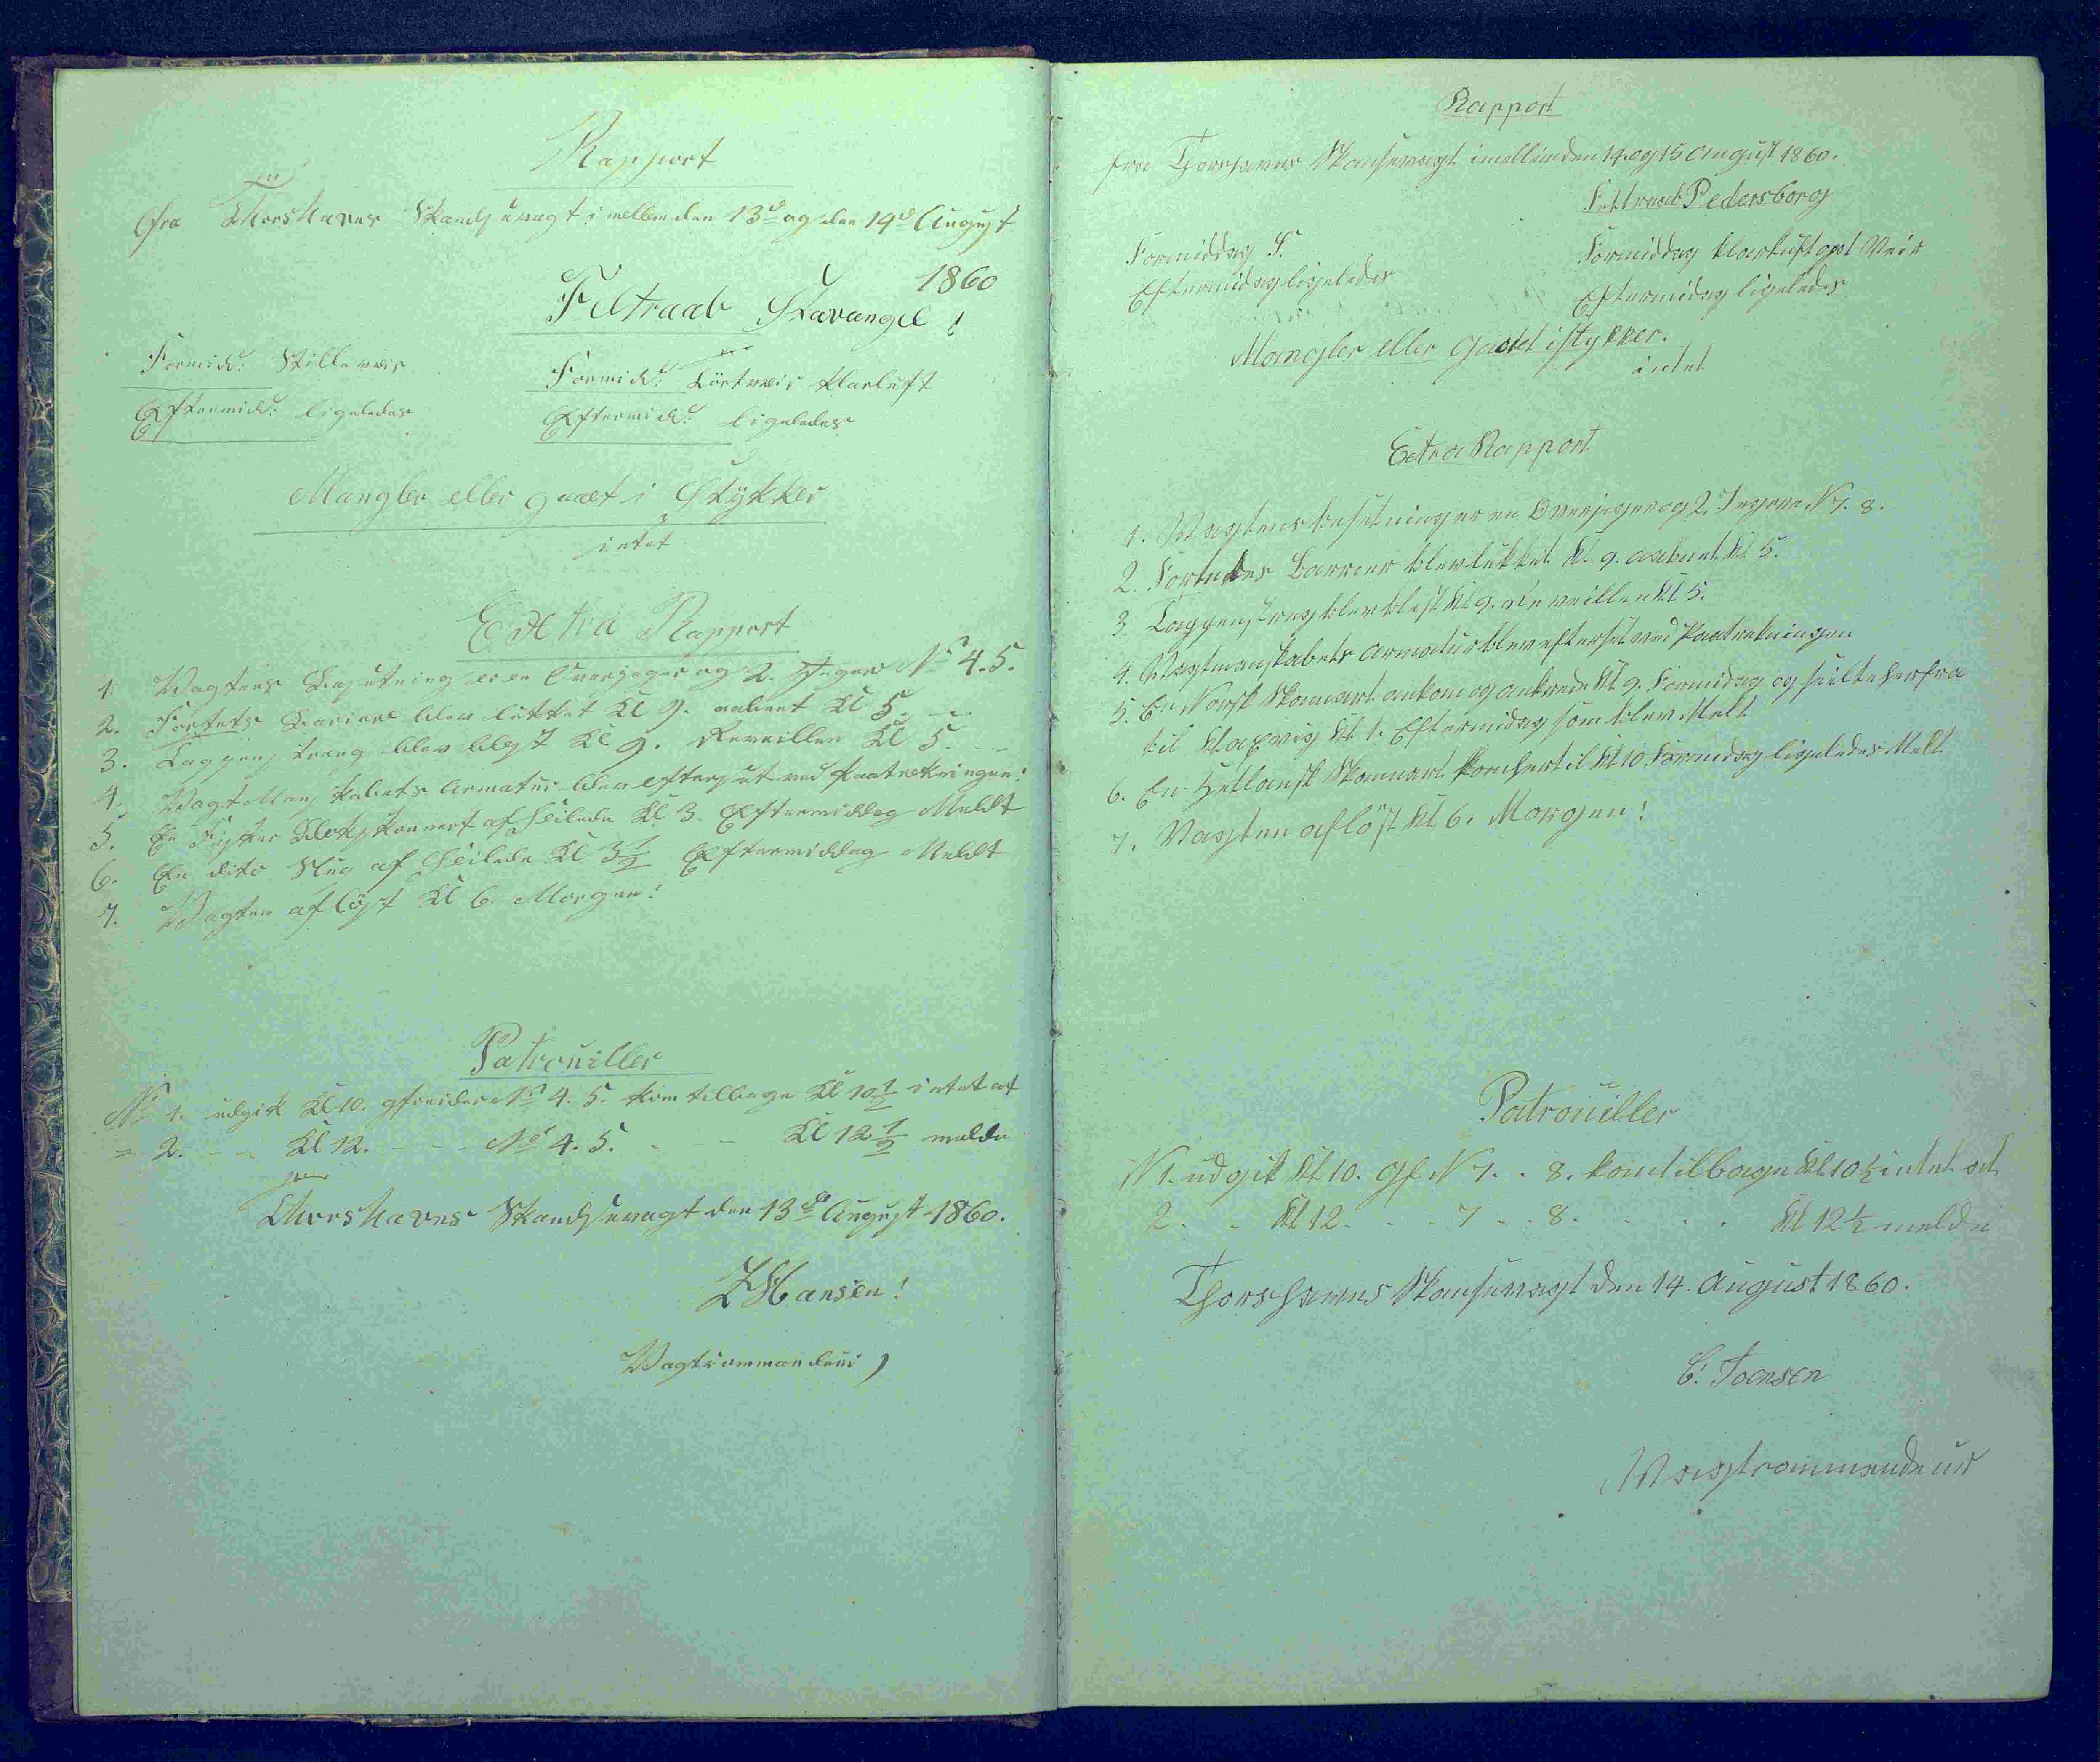 Rapport
fra Thorshavns Skandsevagt imellem den 13de og den 14de August
1860
Feltraab Stavanger!
Formidd: Stille veir
Formidd: Tört veir klarluft
Eftermidd: ligeledes
Eftermidd: ligeledes
Mangler eller gaaet i Stykker
intet
Extra Rapport
1. Vagtens Besætning er en Overjæger og 2. Jæger No 4. 5.
2. Fortets Bariere blev lukket Kl 9. aabnet Kl 5.
3. Tappenstreng blev blæst Kl 9. Reveillen Kl 5.
4. VagtMandskabets Armatur blev efterseet ved Paatrækningen!
5. En Fisker Slupskonnert afseilede Kl 3. Eftermiddag Meldt
6. En dito Slup afseilede Kl 3 1/2 Eftermiddag Meldt
7. Vagten aflöst Kl 6. Morgen!
Patrouiller
No 1. udgik Kl 10. gfreider No 4. 5. kom tilbage Kl 10 1/2 intet at
= 2. - - Kl 12. - - - No 4. 5. - - Kl 12 1/2 melde
Thorshavns Skandsevagt den 13de August 1860.
Hansen!
Vagtcommandeur
Rapport
fra Thorshavns Skansevagt imellem den 14. og 15 August 1860.
Feltraab Pedersborg
Formiddag S.
Formiddag klarluft got Veir
Eftermidag ligeledes
Eftermidag ligeledes
Mangler eller gaaet i stykker.
intet
Extra Rapport
1. Vagtens besetning er en Overjæger og 2. Jegere N 7. 8.
2. Fortetes Barrier blev lukket Kl. 9. aabnet Kl 5.
3. Tappenstreg blev blæst Kl 9. Reveillen Kl 5.
4. Vagtmanskabets armatur blev efterset ved Paatrekningen
5. En Norsk Skonnart ankom og ankrede Kl 9. Formidag og seilte herfra
til Klaxvig Kl 1. Eftermidag som blev Melt
6. En Hetlansk Skonnart kom hertil Kl 10. Formidag ligeledes Melt
7. Vagten aflöst Kl 6. Morgen!
Patrouiller
N 1. udgik Kl 10. Gf N 7. . 8. kom tilbage Kl 10 1/2 intet at
2. . . Kl 12. . . 7 . . 8. . . . . Kl 12 1/2 melde
Thorshavns Skansevagt den 14. August 1860.
Joensen
Vagtcommandeur